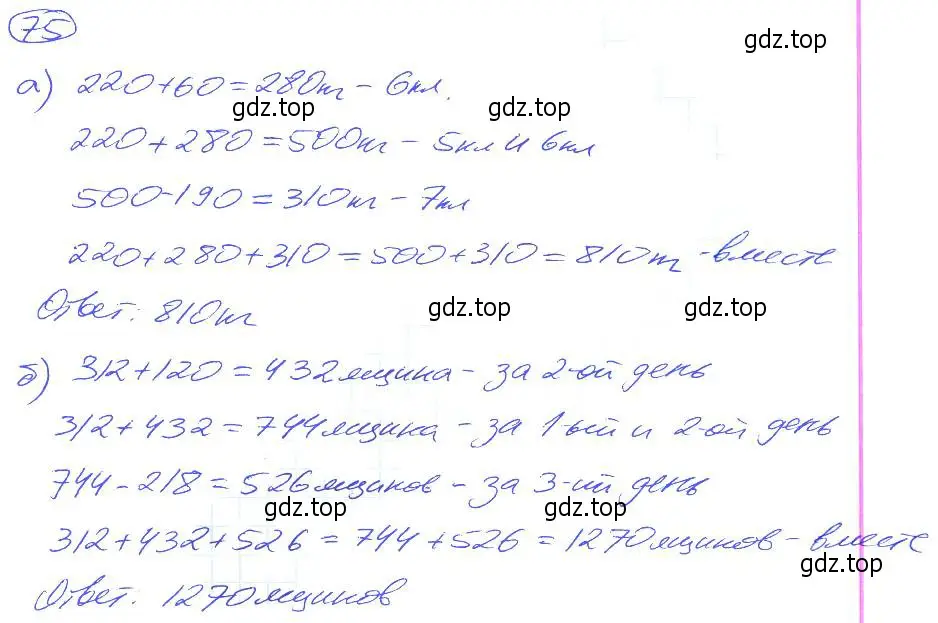 75
gdz.top
а) 220+60=280кг - 6кл.
gdz.top gdz.top
220+280=500кг - 5кл и 6кл
500-190=310кг - 7кл
220+280+310=500+310=810кг - вместе
Ответ: 810кг
gdz.top gdz.top
б) 312+120=432ящика - за 2-ой день
312+432=744ящика - за 1-ый и 2-ой день
744-218=526ящиков - за 3-ий день
gdz.top gdz.top
312+432+526=744+526=1270ящиков - вместе
gdz.top
Ответ: 1270ящиков